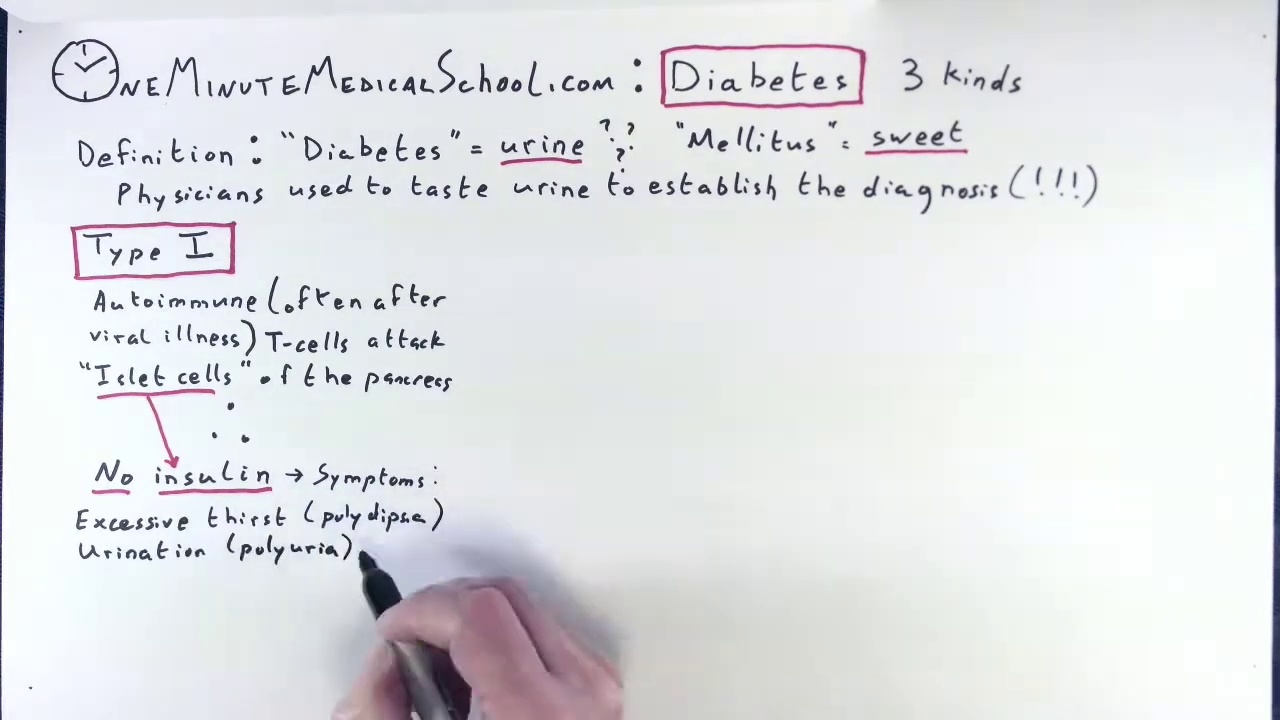 OneMinuteMedicalSchool.com : Diabetes 3 kinds
Definition : "Diabetes" = urine ? ? ? "Mellitus" = sweet
Physicians used to taste urine to establish the diagnosis (!!!)
Type I
Autoimmune (often after
viral illness) T-cells attack
"Islet cells" of the pancreas
∴
No insulin → Symptoms:
Excessive thirst (polydipsia)
Urination (polyuria)